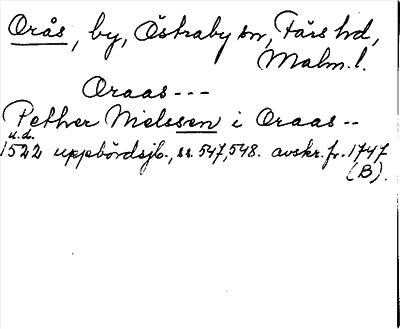 Orås, by, Östraby sn, Färs hd,
Malm. l.
Oraas - - -
Pethver Nielssen i Oraas - -
u.d.
1522 uppbördsjb., ss. 547, 548. avskr. fr. 1747
(B).